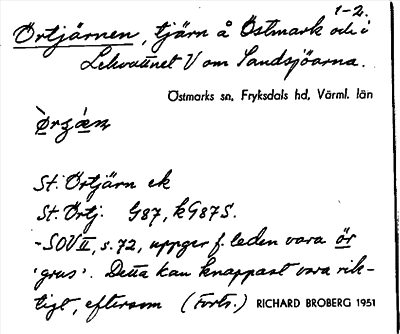 1-2.
Örtjärnen, tjärn å Östmark och i
Lekvattnet V om Sandsjöarna.
Östmarks sn, Fryksdals hd, Värml. län
St. Örtjärn ek
St. Örtj. G87, kG87S.
- SOV II, s. 72, uppger f. leden vara ör
'grus'. Detta kan knappast vara rik-
tigt, eftersom (Forts.) RICHARD BROBERG 1951